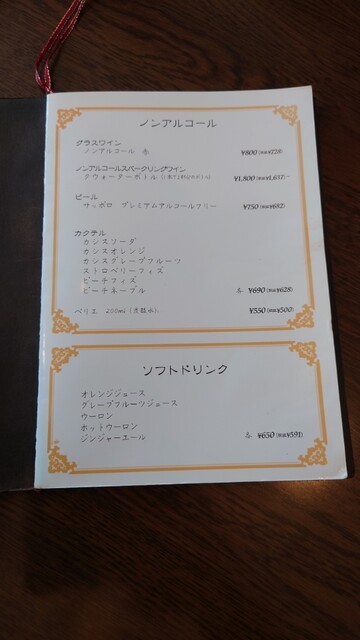 ノンアルコール
グラスワイン
ノンアルコール 赤 ¥800(税抜¥728)
ノンアルコールスパークリングワイン
クウォーターボトル ¥1,800(税抜¥1,637)~
ビール
サッポロ プレミアムアルコールフリー ¥750(税抜¥682)
カクテル
カシスソーダ
カシスオレンジ
カシスグレープフルーツ
ストロベリーフィズ
ピーチフィズ
ピーチネーブル 各 ¥690(税抜¥628)
ペリエ 200ml(炭酸水) ¥550(税抜¥500)
ソフトドリンク
オレンジジュース
グレープフルーツジュース
ウーロン
ホットウーロン
ジンジャーエール 各 ¥650(税抜¥591)